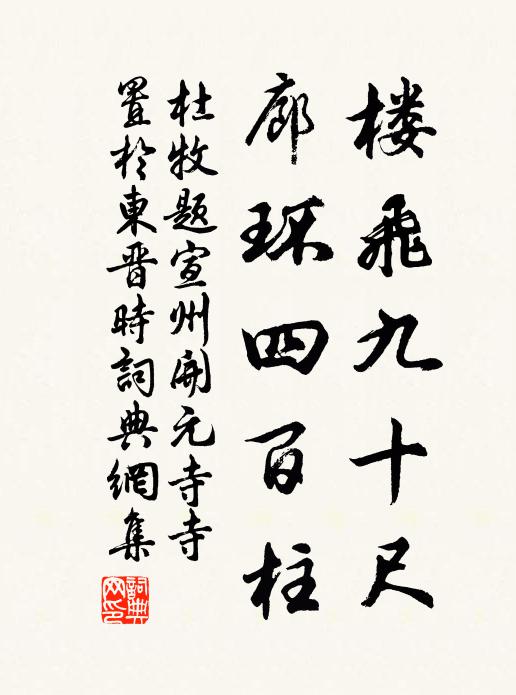 楼飛九十尺
廊环四百柱
杜牧题宣州開元寺寺
置於東晋時詞典網集
詞典
网印